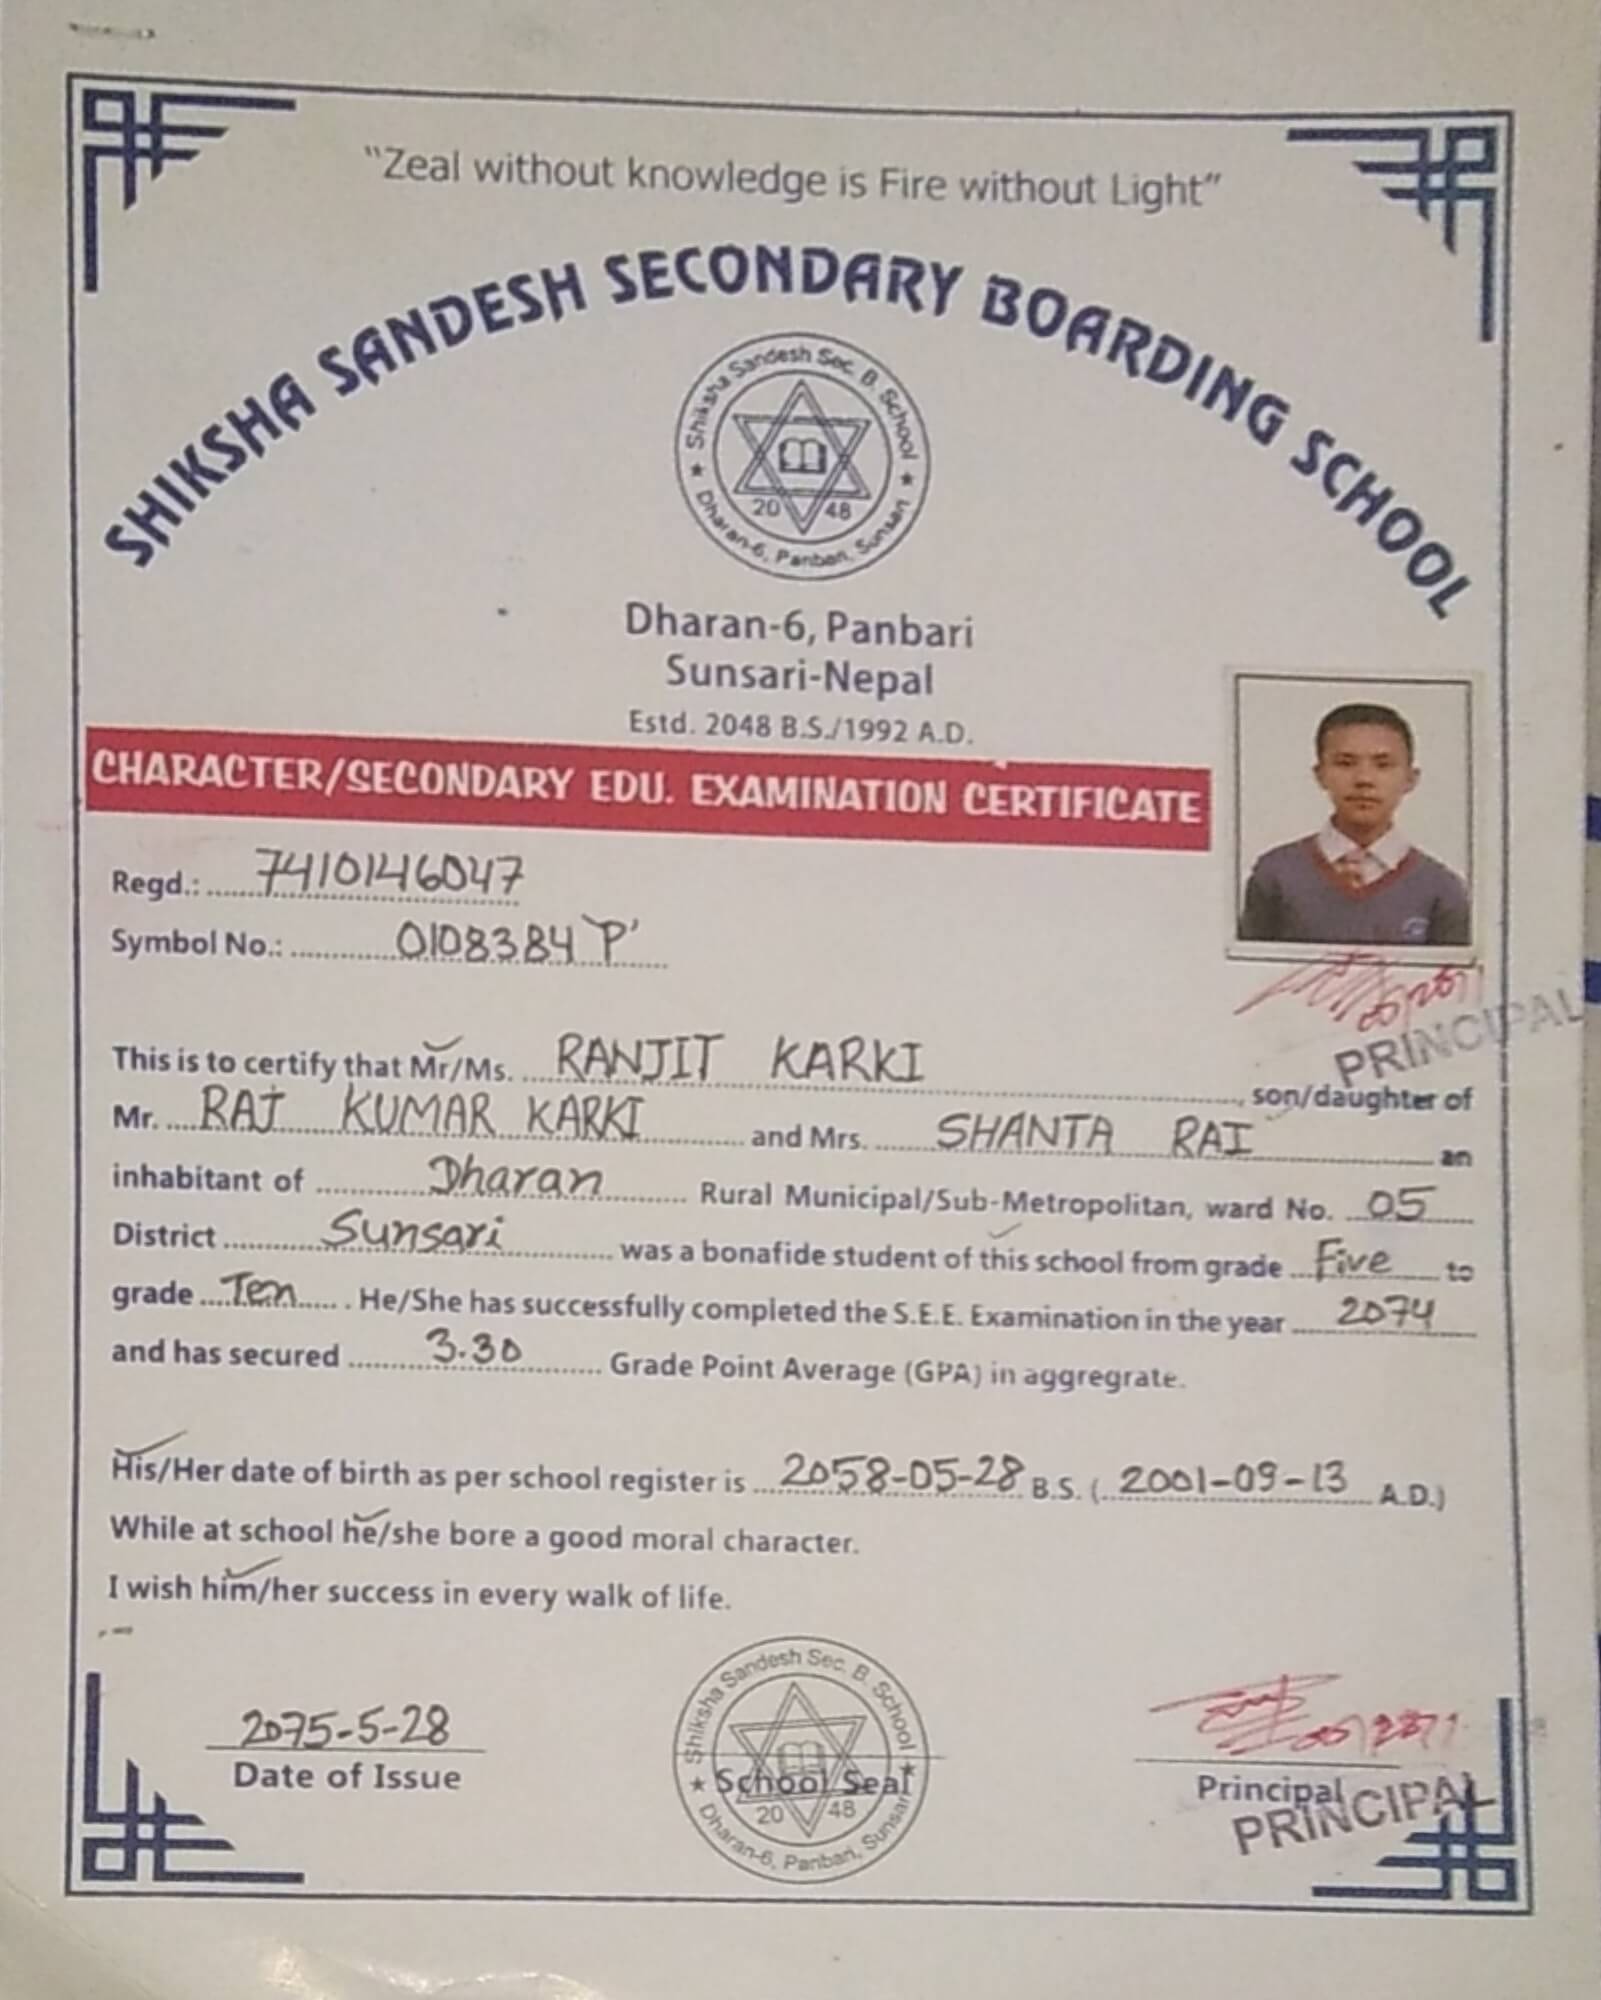 "Zeal without knowledge is Fire without Light"
SHIKSHA SANDESH SECONDARY BOARDING SCHOOL
Shiksha Sandesh Sec. B. School
20 48
Dharan-6, Panbari, Sunsari
Dharan-6, Panbari
Sunsari-Nepal
Estd. 2048 B.S./1992 A.D.
CHARACTER/SECONDARY EDU. EXAMINATION CERTIFICATE
Regd.: 7410146047
Symbol No.: 0108384 'P'
PRINCIPAL
This is to certify that Mr/Ms. RANJIT KARKI, son/daughter of
Mr. RAJ KUMAR KARKI and Mrs. SHANTA RAI an
inhabitant of Dharan Rural Municipal/Sub-Metropolitan, ward No. 05
District Sunsari was a bonafide student of this school from grade Five to
grade Ten. He/She has successfully completed the S.E.E. Examination in the year 2074
and has secured 3.30 Grade Point Average (GPA) in aggregrate.
His/Her date of birth as per school register is 2058-05-28 B.S. (2001-09-13 A.D.)
While at school he/she bore a good moral character.
I wish him/her success in every walk of life.
2075-5-28
Date of Issue
Shiksha Sandesh Sec. B. School
School Seal
20 48
Dharan-6, Panbari, Sunsari
Principal
PRINCIPAL